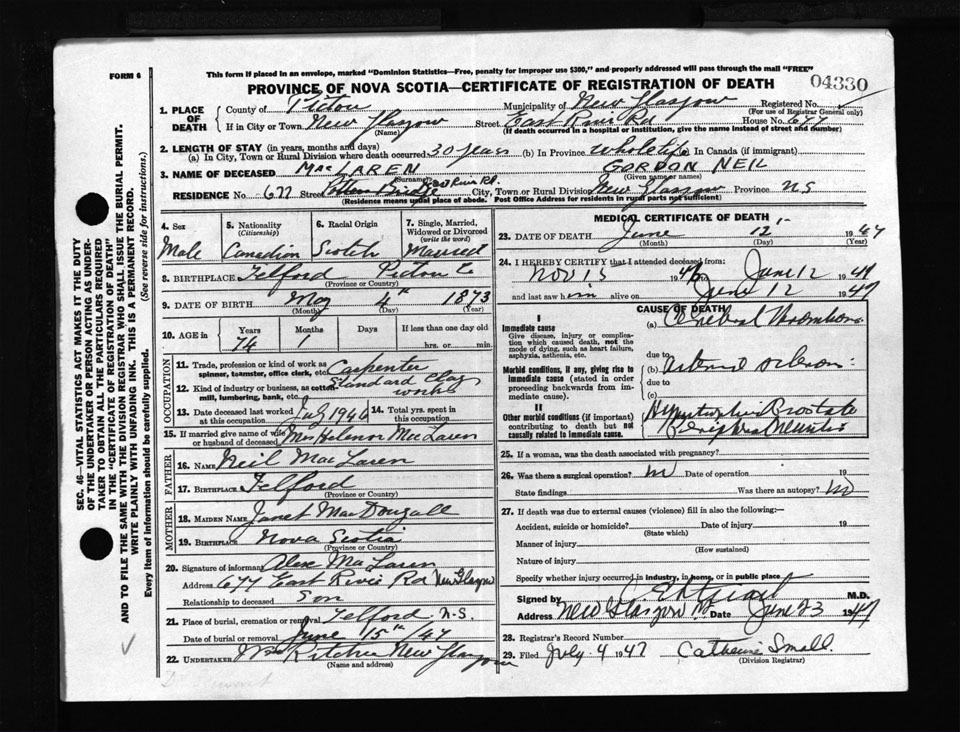 FORM 6
This form if placed in an envelope, marked "Dominion Statistics—Free, penalty for improper use $300," and properly addressed will pass through the mail "FREE"
PROVINCE OF NOVA SCOTIA—CERTIFICATE OF REGISTRATION OF DEATH
04330
1. PLACE OF DEATH
County of Pictou Municipality of New Glasgow Registered No.
(For use of Registrar General only)
If in City or Town New Glasgow Street East River Rd House No. 677
(Name) (If death occurred in a hospital or institution, give the name instead of street and number)
2. LENGTH OF STAY (in years, months and days)
(a) In City, Town or Rural Division where death occurred 30 years (b) In Province whole life (c) In Canada (if immigrant)
3. NAME OF DECEASED MacLAREN GORDON NEIL
(Surname) (Given name or names)
RESIDENCE No. 677 Street East River Rd. City, Town or Rural Division New Glasgow Province N S
(Residence means usual place of abode. Post Office Address for residents in rural parts not sufficient)
4. Sex
Male
5. Nationality
(Citizenship)
Canadian
6. Racial Origin
Scotch
7. Single, Married, Widowed or Divorced
(write the word)
Married
8. BIRTHPLACE Telford Pictou Co
(Province or Country)
9. DATE OF BIRTH May 4th 1873
(Month) (Day) (Year)
10. AGE in
Years Months Days If less than one day old
74 1 hrs. or min.
OCCUPATION
11. Trade, profession or kind of work as spinner, teamster, office clerk, etc. Carpenter
12. Kind of industry or business, as cotton mill, lumbering, bank, etc. Standard Clay works
13. Date deceased last worked at this occupation July 1946
14. Total yrs. spent in this occupation
15. If married give name of wife or husband of deceased Mrs Helenor MacLaren
FATHER
16. NAME Neil MacLaren
17. BIRTHPLACE Telford
(Province or Country)
MOTHER
18. MAIDEN NAME Janet MacDougall
19. BIRTHPLACE Nova Scotia
(Province or Country)
20. Signature of informant Alex MacLaren
Address 677 East River Rd New Glasgow
Relationship to deceased Son
21. Place of burial, cremation or removal Telford N.S.
Date of burial or removal June 15th/47
22. UNDERTAKER Wm Ritchie New Glasgow
(Name and address)
MEDICAL CERTIFICATE OF DEATH
23. DATE OF DEATH June 12 1947
(Month) (Day) (Year)
24. I HEREBY CERTIFY that I attended deceased from:
Nov 15 1946 to June 12 1947
and last saw him alive on June 12 1947
CAUSE OF DEATH
I
Immediate cause
Give disease, injury or complication which caused death, not the mode of dying, such as heart failure, asphyxia, asthenia, etc.
(a) Cerebral Thrombosis
due to
Morbid conditions, if any, giving rise to immediate cause (stated in order proceeding backwards from immediate cause).
(b) arterio sclerosis
due to
(c)
II
Other morbid conditions (if important) contributing to death but not causally related to immediate cause.
Hypertrophic Prostate
Peripheral Neuritis
25. If a woman, was the death associated with pregnancy?
26. Was there a surgical operation? no Date of operation 19
State findings Was there an autopsy? no
27. If death was due to external causes (violence) fill in also the following:—
Accident, suicide or homicide? Date of injury 19
(State which)
Manner of injury
(How sustained)
Nature of injury
Specify whether injury occurred in industry, in home, or in public place.
Signed by M.D.
Address New Glasgow NS Date June 23 1947
28. Registrar's Record Number
29. Filed July 4 1947 Catherine Small.
(Division Registrar)
SEC. 46—VITAL STATISTICS ACT MAKES IT THE DUTY
OF THE UNDERTAKER OR PERSON ACTING AS UNDERTAKER TO OBTAIN ALL THE PARTICULARS REQUIRED
IN THE "CERTIFICATE OF REGISTRATION OF DEATH"
AND TO FILE THE SAME WITH THE DIVISION REGISTRAR WHO SHALL ISSUE THE BURIAL PERMIT.
WRITE PLAINLY WITH UNFADING INK. THIS IS A PERMANENT RECORD.
Every item of information should be carefully supplied. (See reverse side for instructions.)